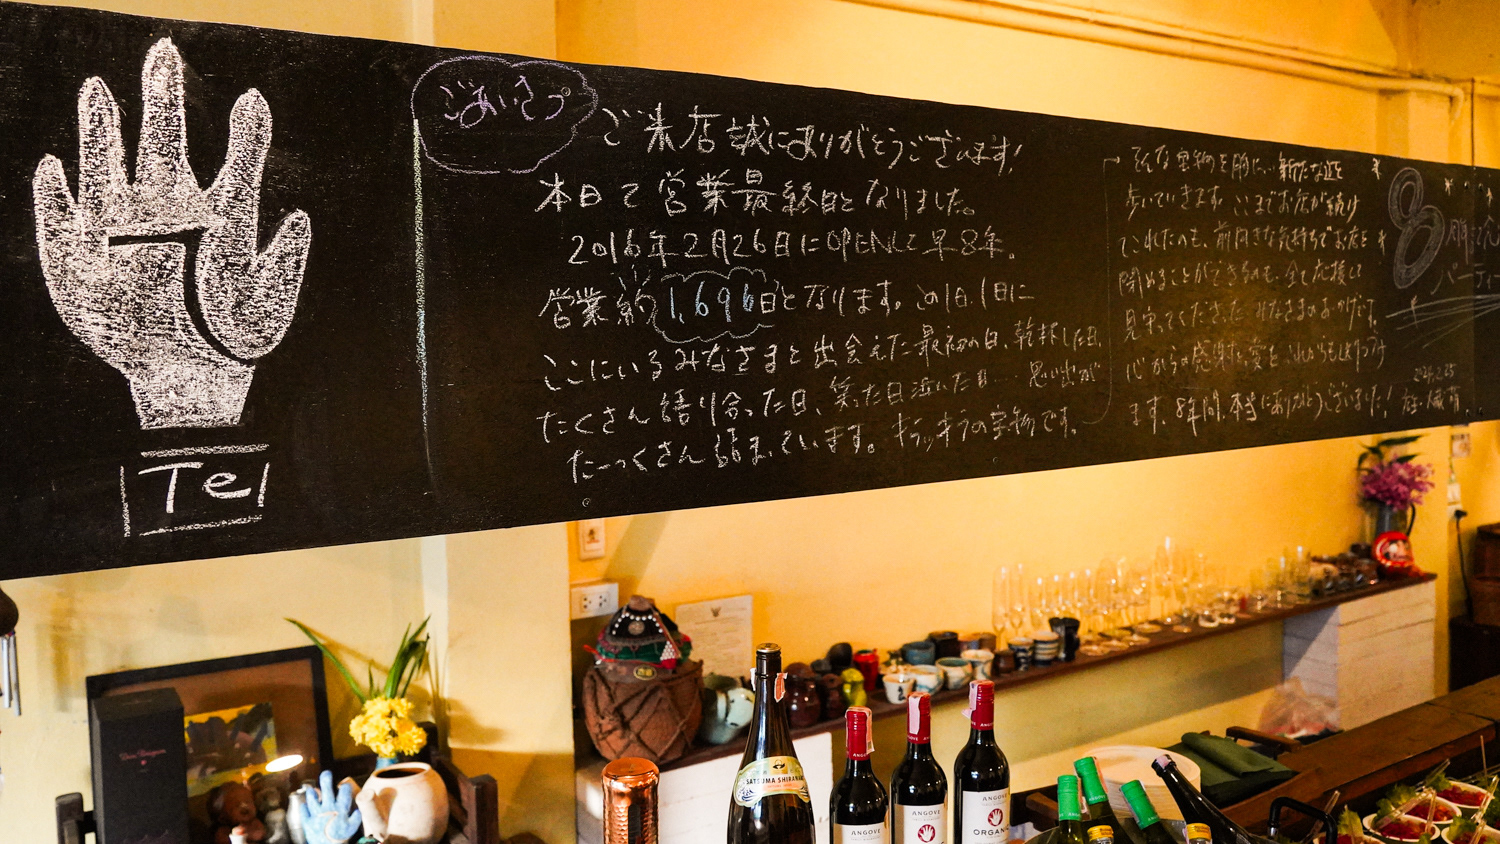 Te
ごあいさつ
ご来店誠にありがとうございます!
本日で営業最終日となりました。
2016年2月26日にOPENして早8年。
営業約1,696日となります。この1日、1日に
ここにいるみなさまと出会えた最初の日、乾杯した日、
たくさん語り合った日、笑った日泣いた日… 思い出が
たーっくさん詰まっています。キラッキラの宝物です。
そんな宝物を胸に… 新たな道を
歩いていきます。ここまでお店が続け
てこれたのも、前向きな気持ちでお店を
閉めることができるのも、全て応援し
見守ってくださったみなさまのおかげです。
心からの感謝と愛を これからもしょうつづけ
ます。8年間、本当にありがとうございました!
8周年
パーティー
SATSUMA SHIRANAMI
ANGOVE
ANGOVE
ANGOVE
ORGANIC